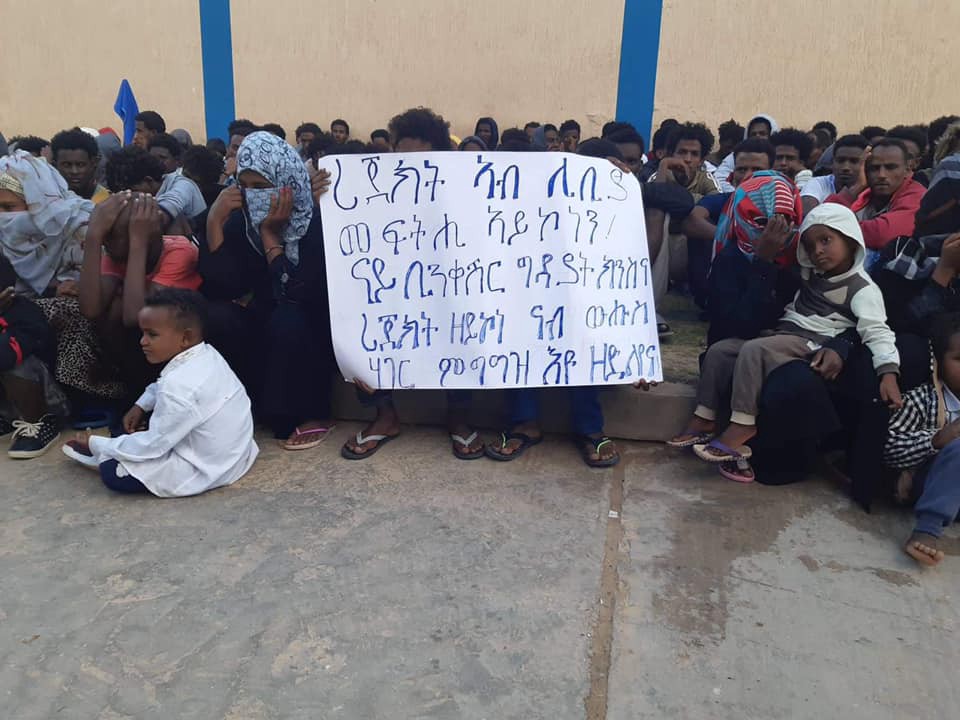 ሪጀክት ኣብ ሊቢያ
መፍትሒ ኣይኮነን!
ናይ ቢንቀሽር ግዳያት ክንስና
ሪጀክት ዘይኮነ ናብ ውሑስ
ሃገር ምግግዝ እዩ ዘድልየና